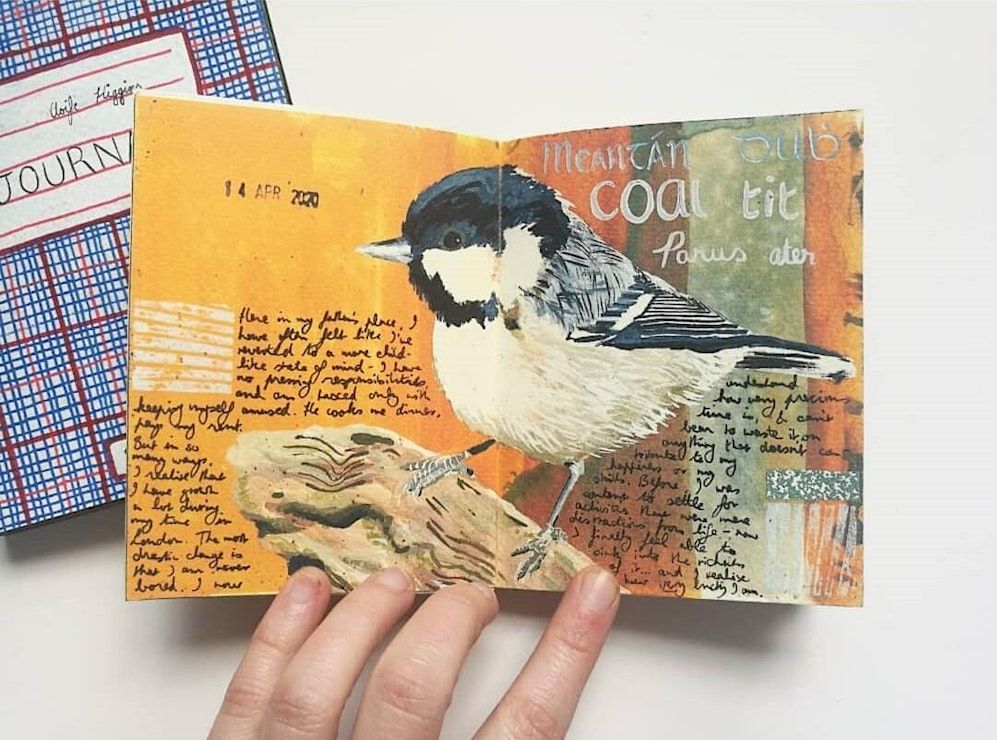 Aoife Higgins
JOURN
14 APR 2020
Meantán Dub
coal tit
Parus ater
Here in my father's place, I
have often felt like I've
reverted to a more child-
like state of mind - I have
no pressing responsibilities,
and am tasked only with
keeping myself amused. He cooks me dinner,
pays my rent.
But in so
many ways,
I realise that
I have grown
a lot during
my time in
London. The most
drastic change is
that I am never
bored. I now
understand
how very precious
time is, & can't
bear to waste it on
anything that doesn't con
tribute to my
happiness or my
skills. Before, I was
content to settle for
activities that were mere
distractions from life - now
I finally feel able to
sink into the richness
of it... and I realise
how very lucky I am.